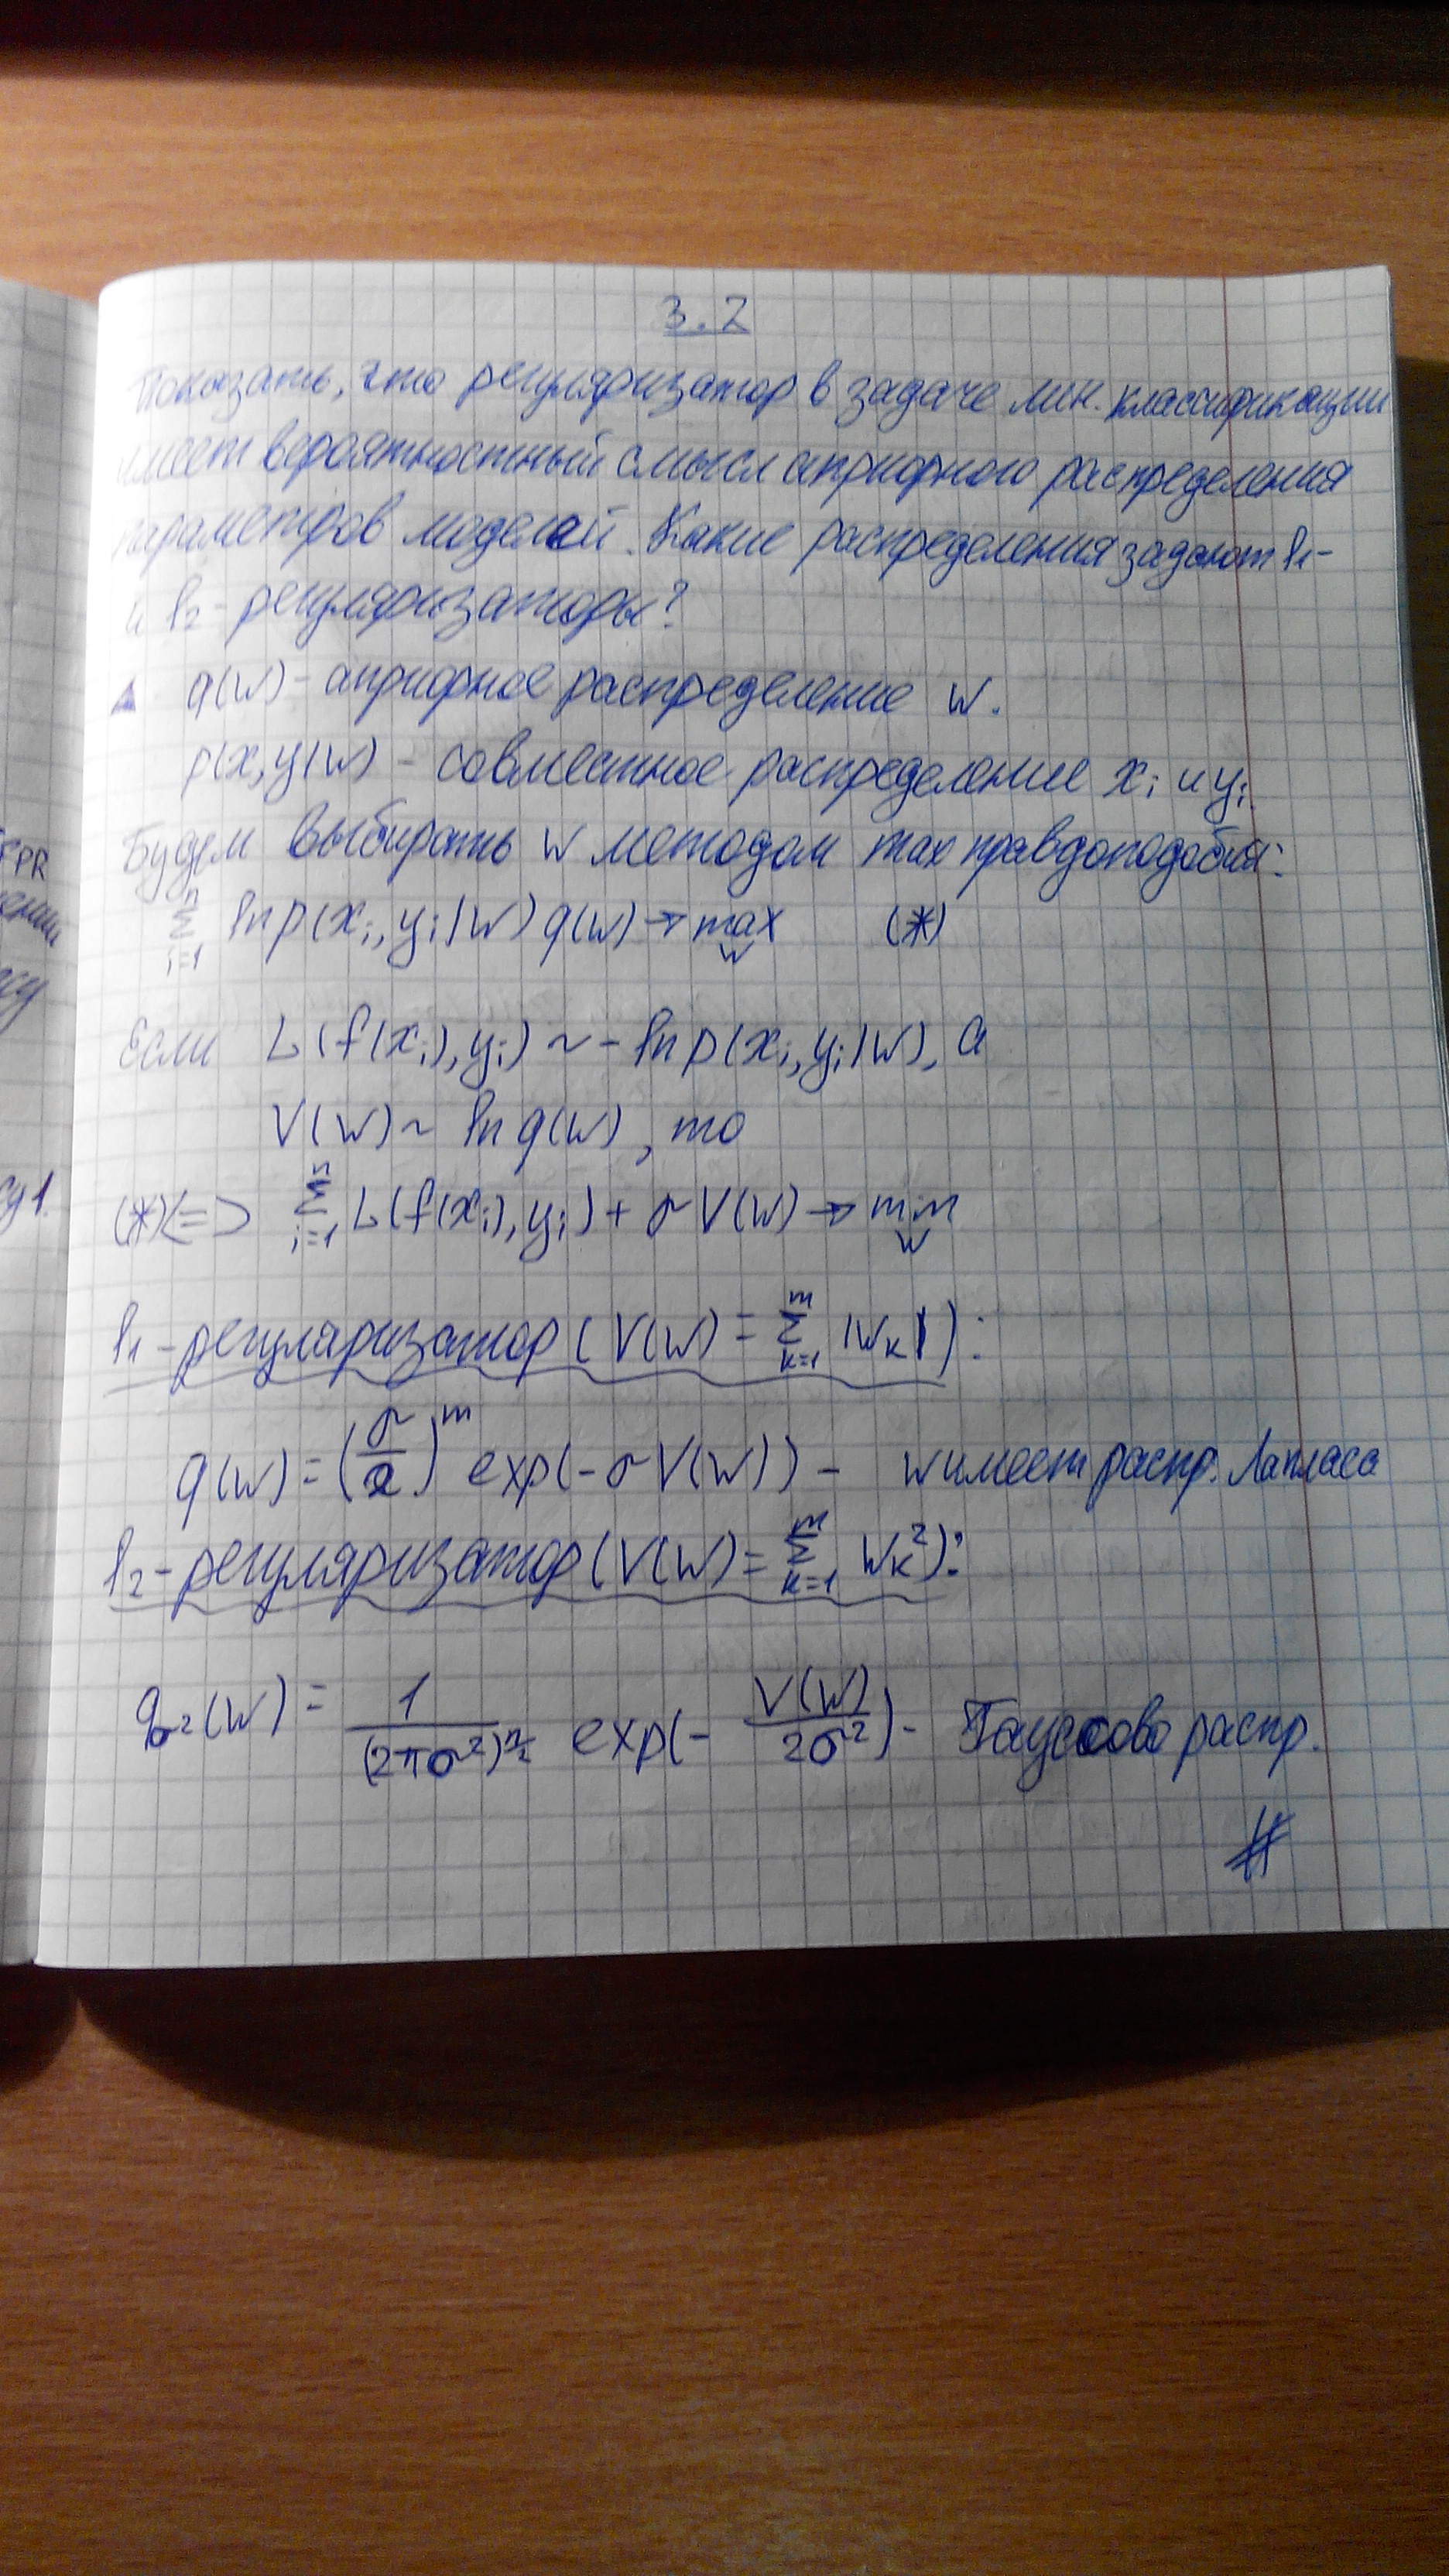 3.2
Показать, что регуляризатор в задаче лин. классификации
имеет вероятностный смысл априорного распределения
параметров моделей. Какие распределения задают l₁-
и l₂-регуляризаторы?
q(w) - априорное распределение w.
p(x,y|w) - совместное распределение xᵢ и yᵢ
Будем выбирать w методом max правдоподобия:
∑ᵢ₌₁ⁿ ln p(xᵢ, yᵢ|w) q(w) → max_w (*)
Если L(f(xᵢ), yᵢ) ~ - ln p(xᵢ, yᵢ|w), а
V(w) ~ ln q(w), то
(*) <=> ∑ᵢ₌₁ⁿ L(f(xᵢ), yᵢ) + σ V(w) → min_w
l₁-регуляризатор (V(w) = ∑ₖ₌₁ᵐ |wₖ|):
q(w) = (σ/2)ᵐ exp(-σ V(w)) - w имеет распр. Лапласа
l₂-регуляризатор (V(w) = ∑ₖ₌₁ᵐ wₖ²):
q_σ²(w) = 1/(2πσ²)^(n/2) exp(- V(w)/2σ²) - Гауссово распр.
#
FPR
су 1.